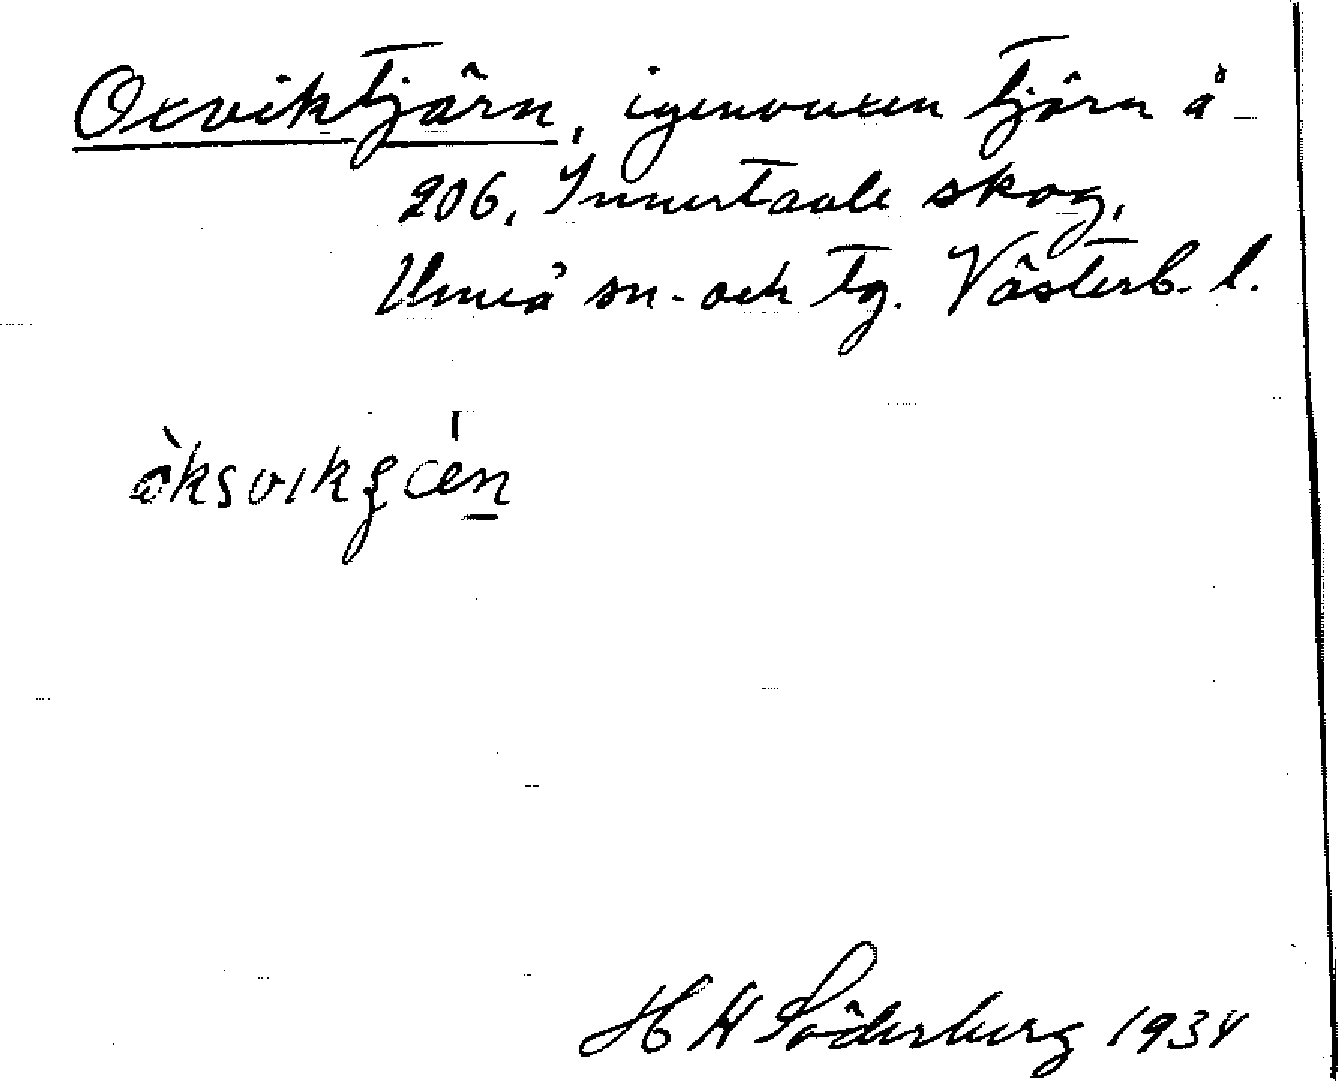 Oxviktjärn, igenvuxen tjärn å
206, Innertavle skog,
Umeå sn- och tg. Västerb. l.
H W Söderberg 1934